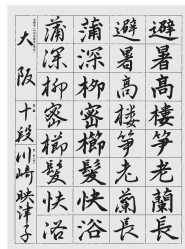 避暑高楼筝老蘭長
避暑高楼筝老蘭長
蒲深柳密櫛髪快浴
蒲深柳密櫛髪快浴
大阪 十段 川崎映津子